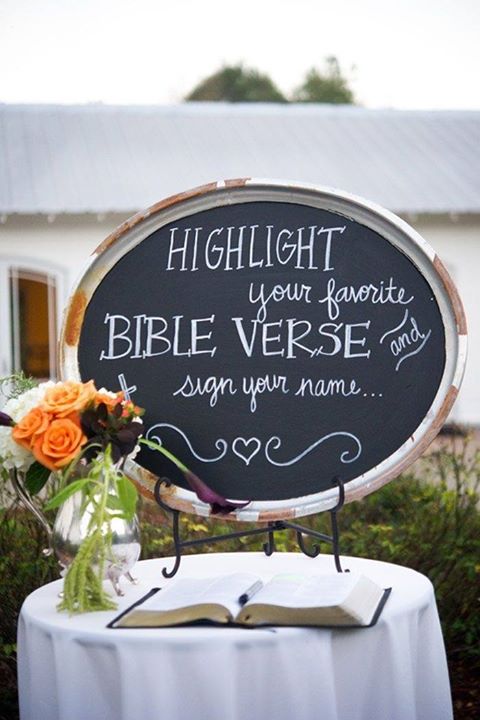 HIGHLIGHT
your favorite
BIBLE VERSE and
sign your name...